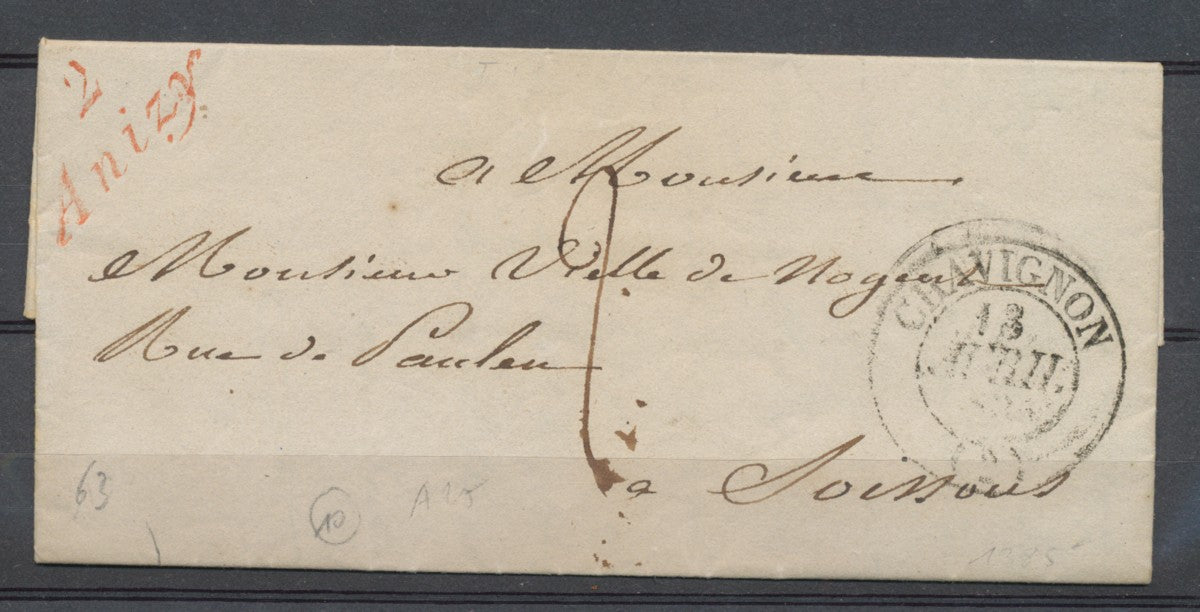 2
Anizy
a Monsieur
Monsieur Vielle de Nogent
Rue de Pauleu
a Soissons
CHAVIGNON
13
AVRIL
(2)
63
10
A25